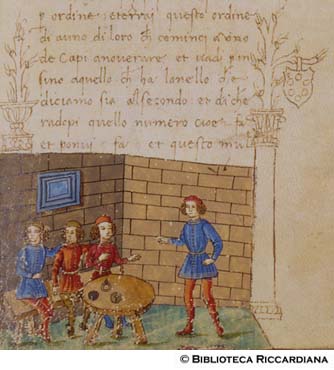 p ordine: et terrai questo ordine
di auno di loro ch cominci a uno
de Capi anoverare et vadi pin
sino aquello ch ha lanello et e
diciamo sia al secondo: et di che
radopi quello numero cioe
et ponvi et questo mul
© BIBLIOTECA RICCARDIANA